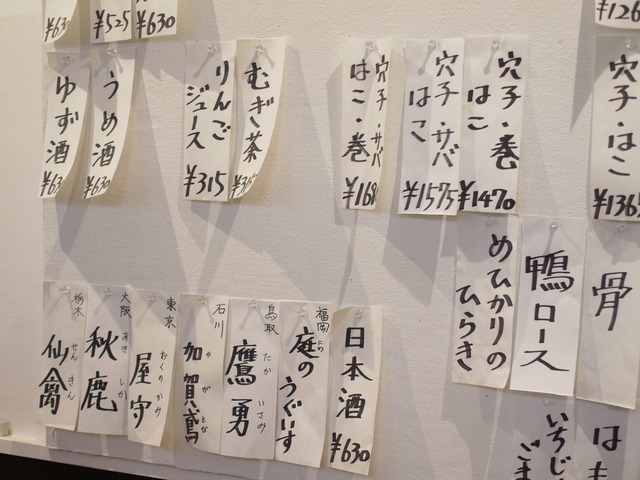 ¥630
¥525
¥630
¥126
うめ酒
ゆず酒
¥63
¥630
むぎ茶
りんご
ジュース
¥315
¥315
穴子・サバ
はこ・巻
¥168
穴子・サバ
はこ
¥1575
穴子・巻
はこ
¥1470
穴子・はこ
¥1365
骨
鴨ロース
めひかりの
ひらき
はま
いちじ
ごま
日本酒
¥630
福岡
庭のうぐいす
鳥取
鷹勇
たか
いさみ
石川
加賀鳶
かが
とび
東京
屋守
おくのかみ
大阪
秋鹿
あき
しか
栃木
仙禽
せん
きん